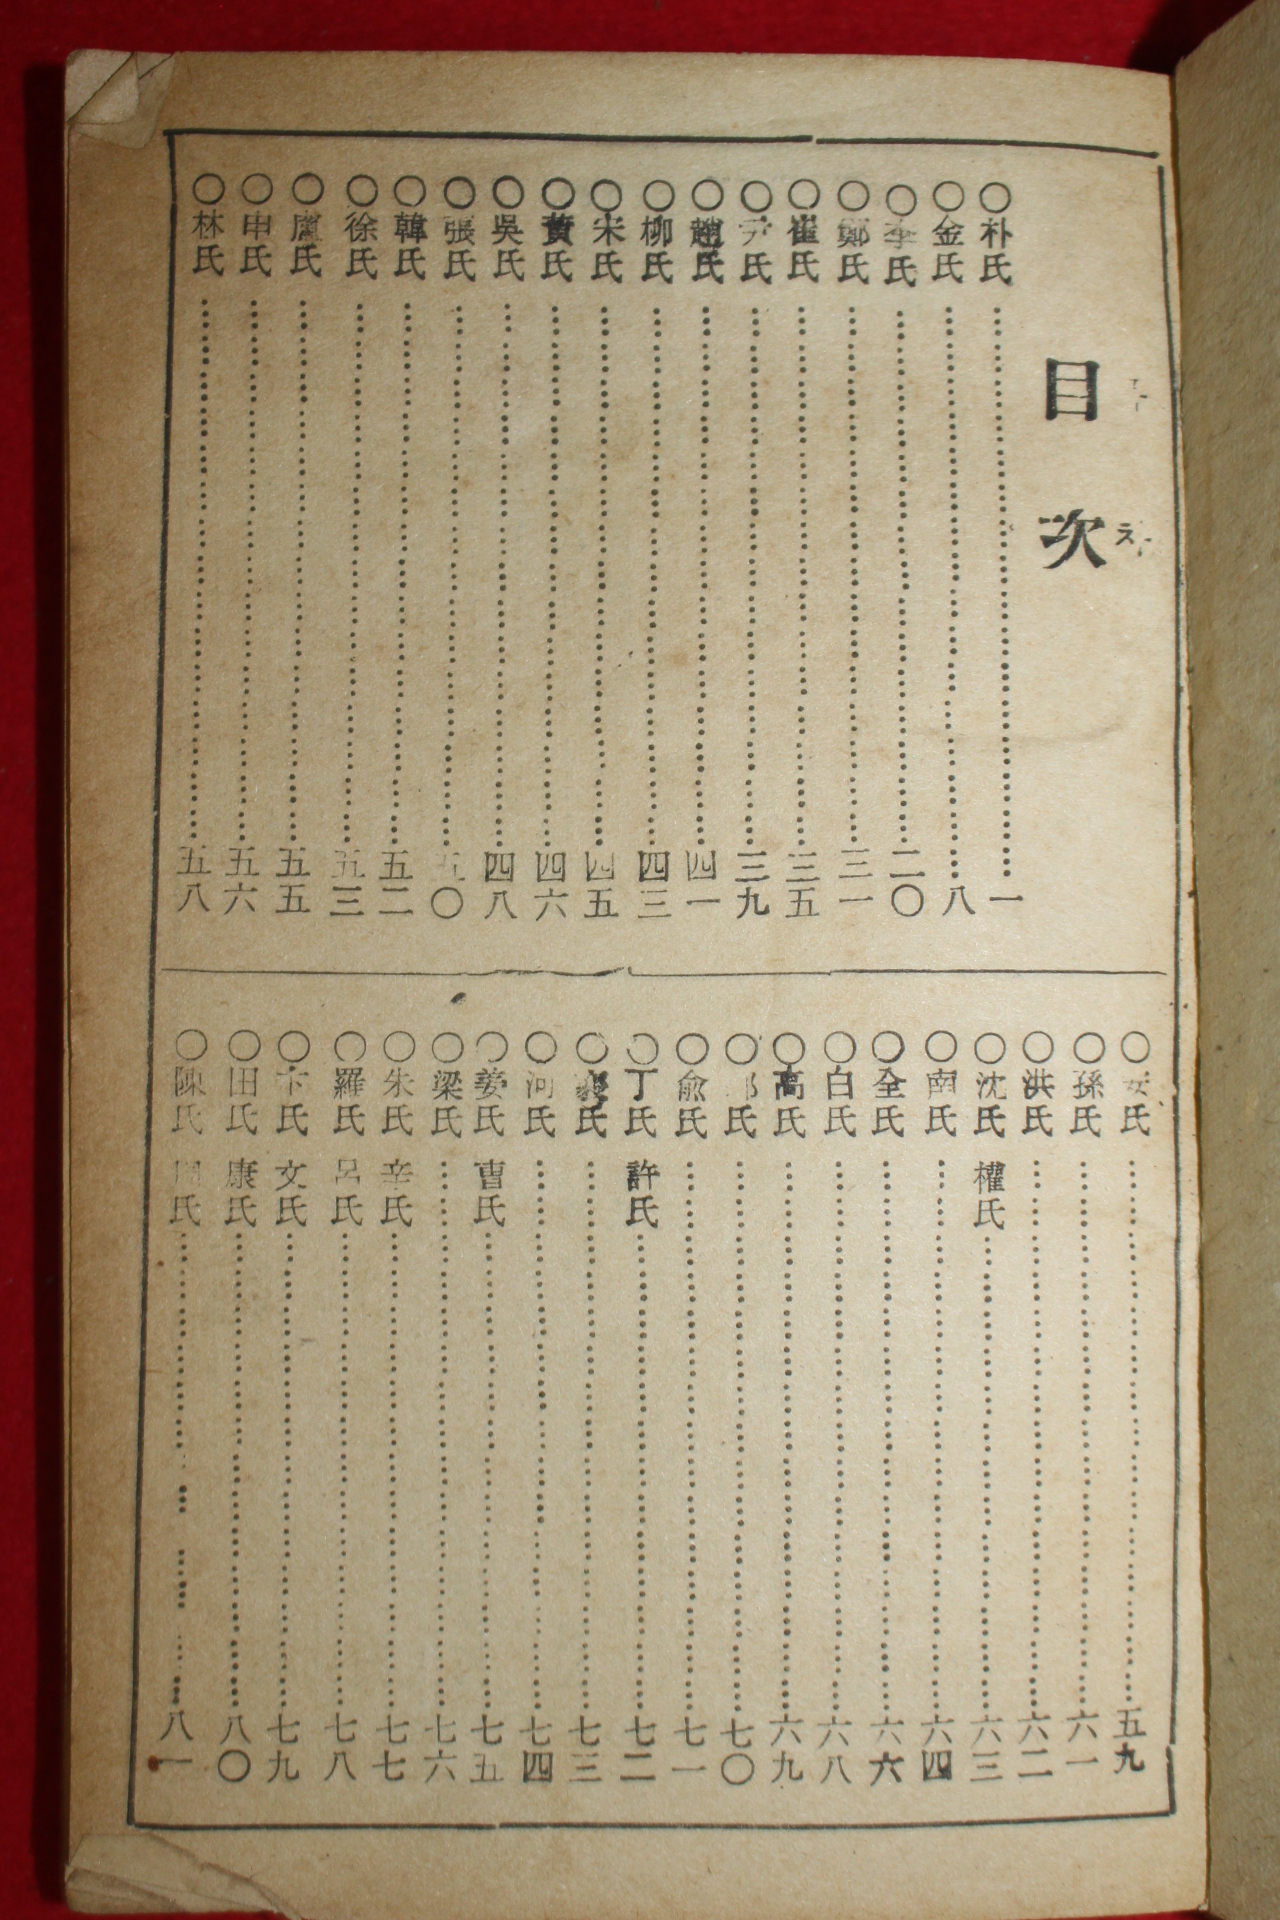 目次
○朴氏………一
○金氏………八
○李氏………二〇
○鄭氏………三一
○崔氏………三五
○尹氏………三九
○趙氏………四一
○柳氏………四三
○宋氏………四五
○黃氏………四六
○吳氏………四八
○張氏………五〇
○韓氏………五二
○徐氏………五三
○盧氏………五五
○申氏………五六
○林氏………五八
○安氏………五九
○孫氏………六一
○洪氏………六二
○沈氏 權氏………六三
○南氏………六四
○全氏………六六
○白氏………六八
○高氏………六九
○氏………七〇
○兪氏………七一
○丁氏 許氏………七二
○裵氏………七三
○河氏………七四
○姜氏 曺氏………七五
○梁氏………七六
○朱氏 辛氏………七七
○羅氏 呂氏………七八
○卞氏 文氏………七九
○田氏 康氏………八〇
○陳氏 周氏………八一